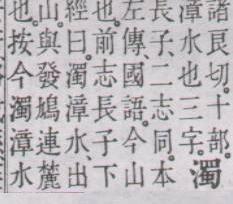 諸良切。十部。
漳水也三字
濁
長子。二志同。本
左傳、國語。今山
也。前志長子下
經曰。濁漳水、出
山。與發鳩連麓
也。按今濁漳水